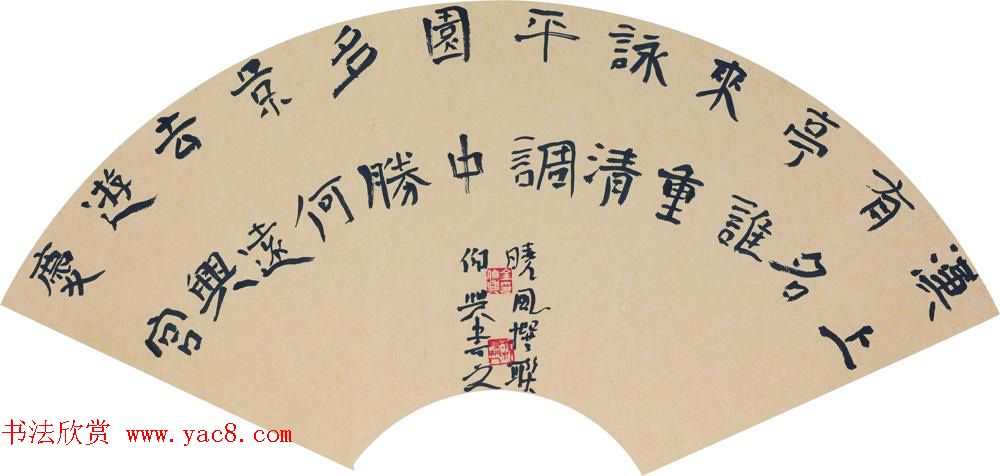 漢上
有名
亭誰
來重
詠清
平調
園中
多勝
景何
去遠
遊興
慶宮
曉風撰聯
伯興書之
书法欣赏 www.yac8.com